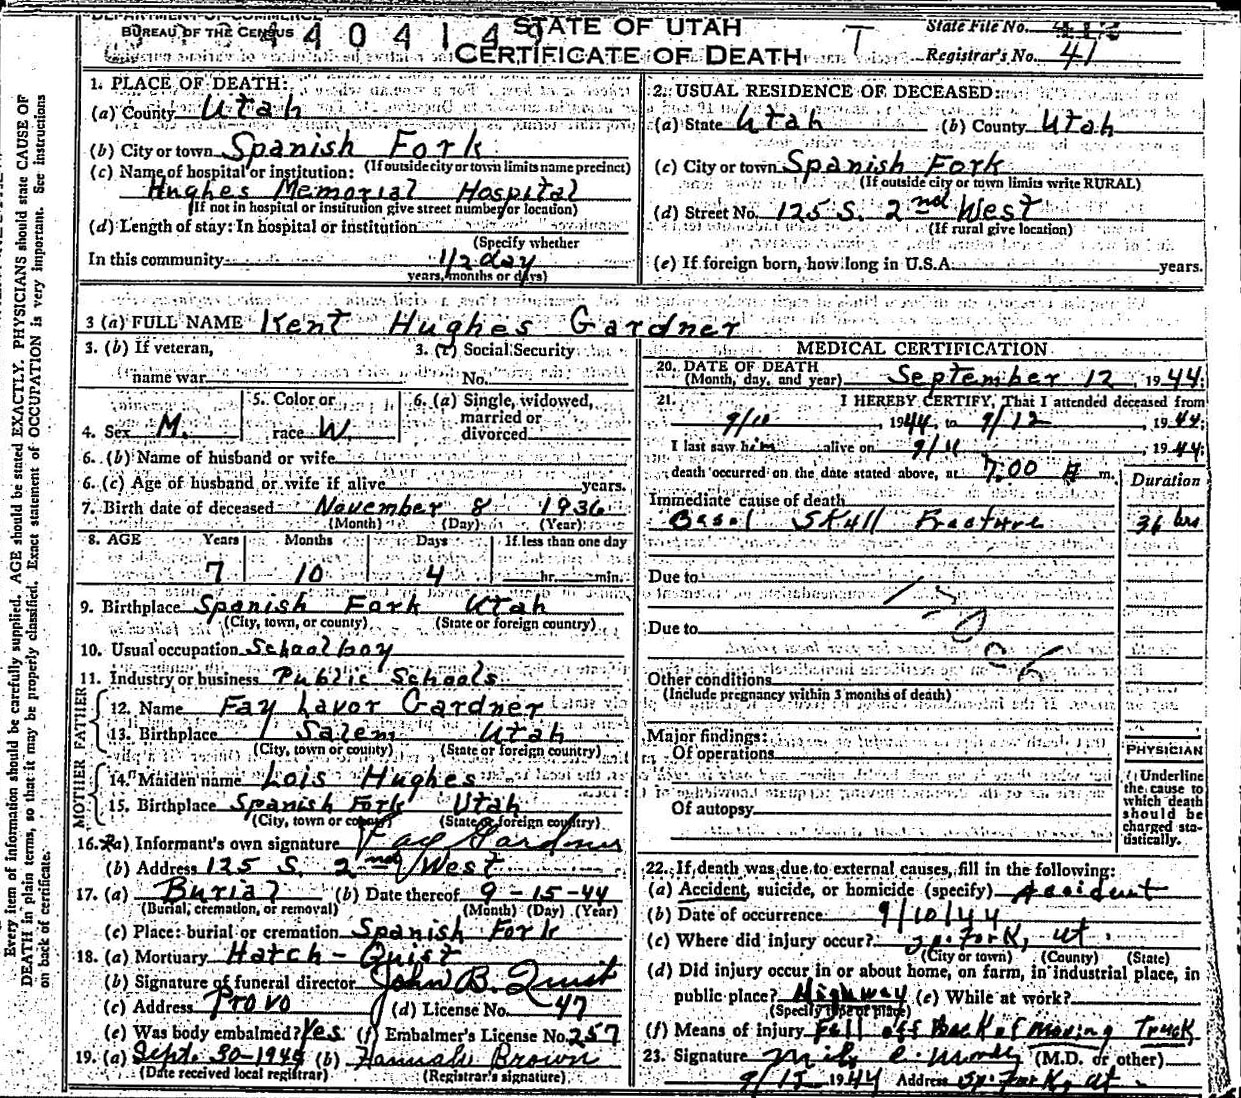 DEPARTMENT OF COMMERCE
BUREAU OF THE CENSUS
440414
STATE OF UTAH
CERTIFICATE OF DEATH
T
State File No.
Registrar's No. 41
1. PLACE OF DEATH:
(a) County Utah
(b) City or town Spanish Fork
(If outside city or town limits name precinct)
(c) Name of hospital or institution:
Hughes Memorial Hospital
(If not in hospital or institution give street number or location)
(d) Length of stay: In hospital or institution
(Specify whether
In this community 1/2 day
years, months or days)
2. USUAL RESIDENCE OF DECEASED:
(a) State Utah (b) County Utah
(c) City or town Spanish Fork
(If outside city or town limits write RURAL)
(d) Street No. 125 S. 2nd West
(If rural give location)
(e) If foreign born, how long in U.S.A. years.
3 (a) FULL NAME Kent Hughes Gardner
3. (b) If veteran,
name war
3. (c) Social Security
No.
4. Sex M.
5. Color or
race W.
6. (a) Single, widowed,
married or
divorced
6. (b) Name of husband or wife
6. (c) Age of husband or wife if alive years.
7. Birth date of deceased November 8 1936
(Month) (Day) (Year)
8. AGE Years Months Days If less than one day
7 10 4 hr. min.
9. Birthplace Spanish Fork Utah
(City, town, or county) (State or foreign country)
10. Usual occupation Schoolboy
11. Industry or business Public Schools
FATHER
12. Name Fay Lavor Gardner
13. Birthplace Salem Utah
(City, town or county) (State or foreign country)
MOTHER
14. Maiden name Lois Hughes
15. Birthplace Spanish Fork Utah
(City, town or county) (State or foreign country)
16. (a) Informant's own signature Fay Gardner
(b) Address 125 S. 2nd West
17. (a) Burial (b) Date thereof 9-15-44
(Burial, cremation, or removal) (Month) (Day) (Year)
(c) Place: burial or cremation Spanish Fork
18. (a) Mortuary Hatch-Quist
(b) Signature of funeral director John B. Quist
(c) Address Provo (d) License No. 47
(e) Was body embalmed? Yes (f) Embalmer's License No. 257
19. (a) Sept. 30-194 (b) Hannah Brown
(Date received local registrar) (Registrar's signature)
MEDICAL CERTIFICATION
20. DATE OF DEATH
(Month, day, and year) September 12, 1944;
21. I HEREBY CERTIFY, That I attended deceased from
9/10, 1944, to 9/12, 1944;
I last saw him alive on 9/11 1944;
death occurred on the date stated above, at 7:00 A m.
Duration
Immediate cause of death
Basal Skull Fracture 36 hrs
Due to
Due to
Other conditions
(Include pregnancy within 3 months of death)
Major findings:
Of operations
Of autopsy
PHYSICIAN
Underline
the cause to
which death
should be
charged sta-
tistically.
22. If death was due to external causes, fill in the following:
(a) Accident, suicide, or homicide (specify) Accident
(b) Date of occurrence 9/10/44
(c) Where did injury occur? Sp. Fork, Ut.
(City or town) (County) (State)
(d) Did injury occur in or about home, on farm, in industrial place, in
public place? Highway (e) While at work?
(Specify type of place)
(f) Means of injury Fell off back of moving Truck
23. Signature (M.D. or other)
9/15 1944 Address Sp. Fork, Ut.
Every item of information should be carefully supplied. AGE should be stated EXACTLY. PHYSICIANS should state CAUSE OF
DEATH in plain terms, so that it may be properly classified. Exact statement of OCCUPATION is very important. See instructions
on back of certificate.